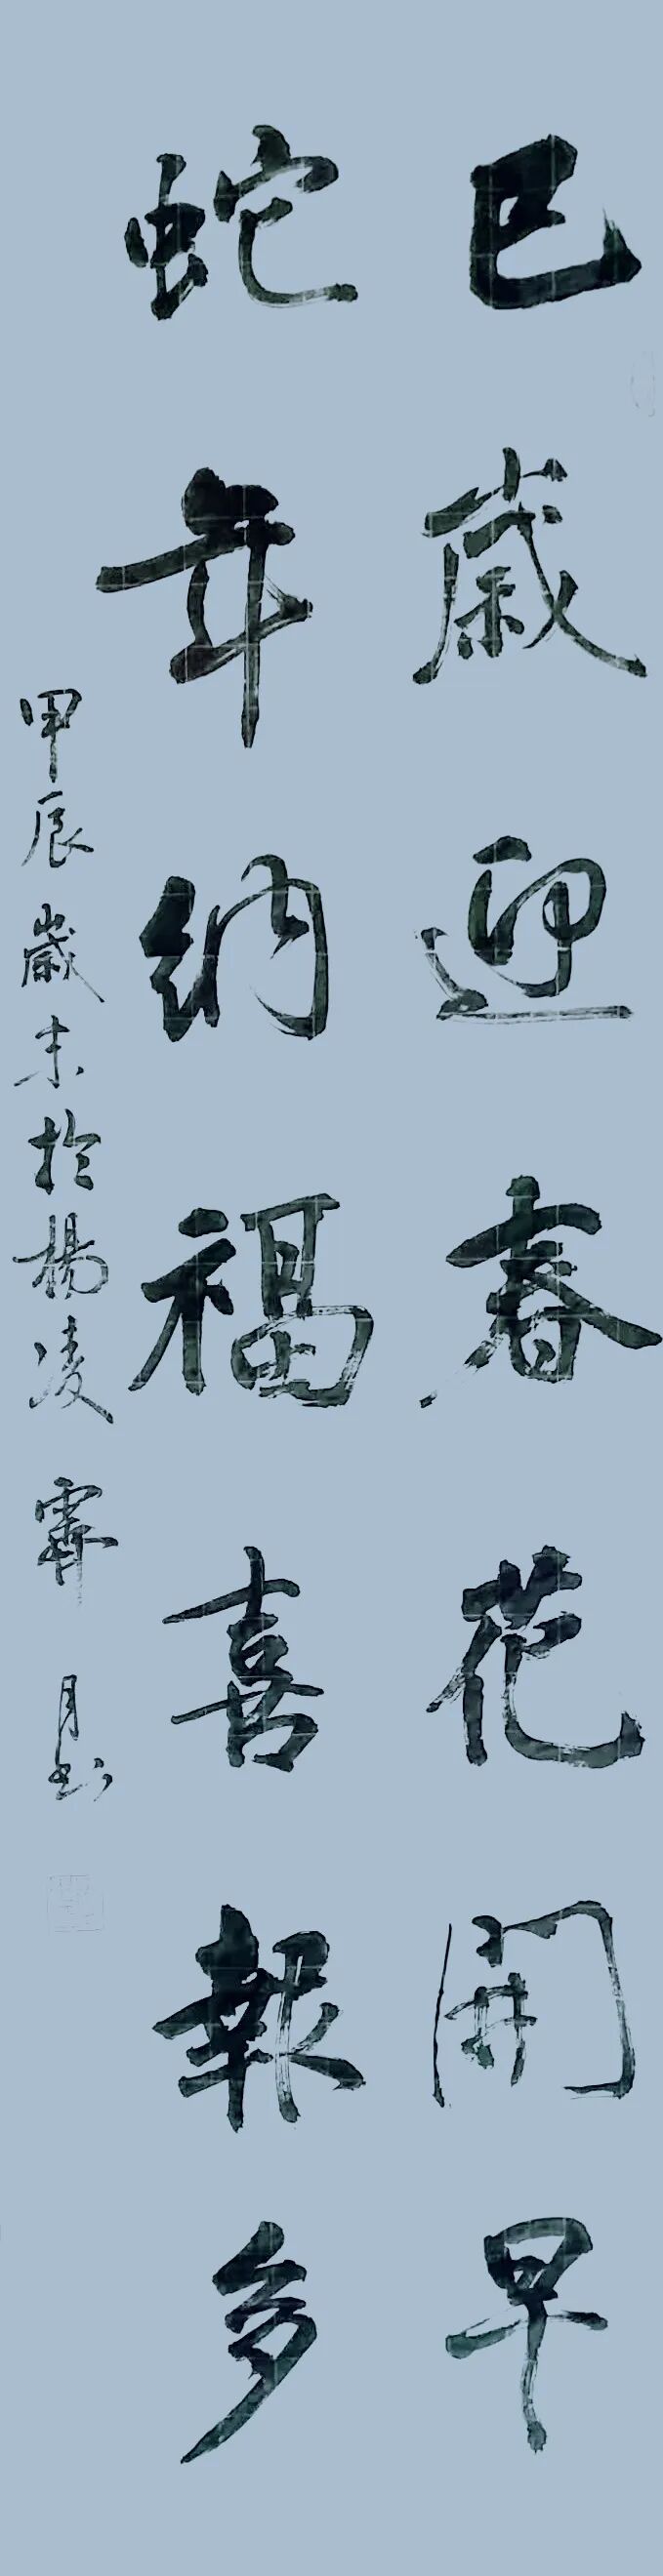 巳歲迎春花開早
蛇年納福喜報多
甲辰歲末於楊凌 霽月书